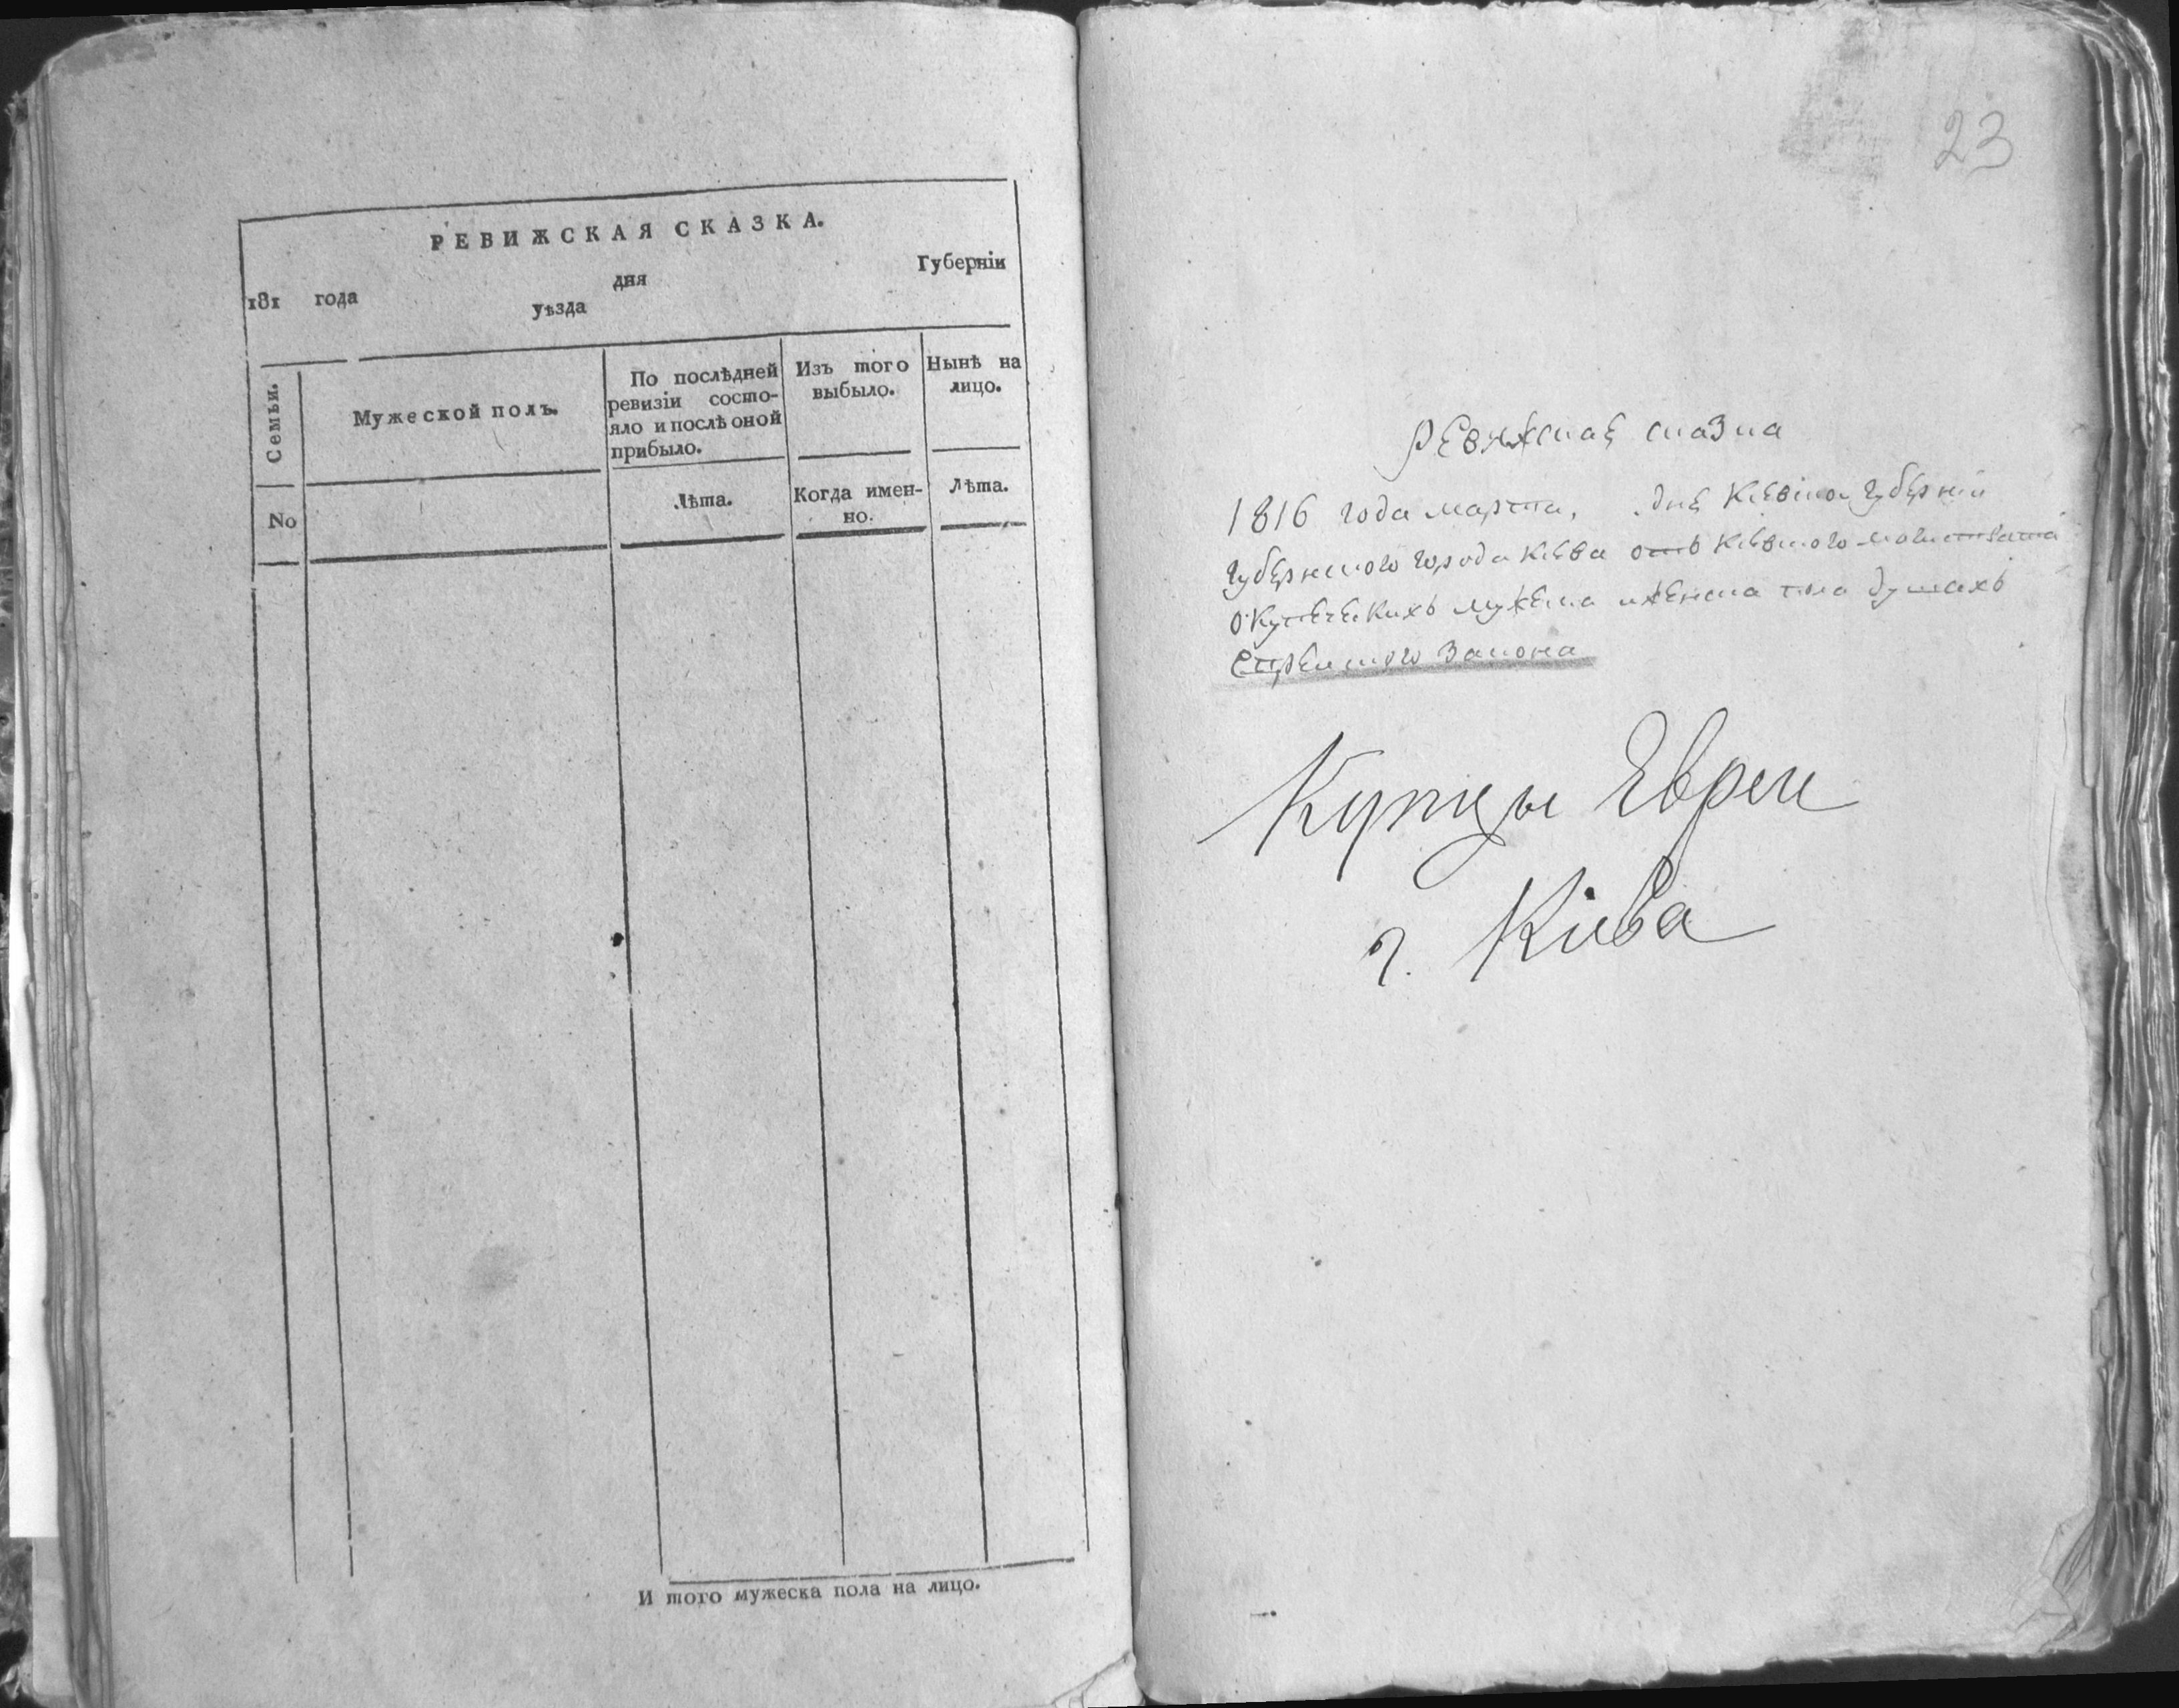 РЕВИЖСКАЯ СКАЗКА.
181 года дня Губерніи
уѣзда
Семьи.
Мужеской полъ.
По послѣдней
ревизіи состо-
яло и послѣ оной
прибыло.
Изъ того
выбыло.
Нынѣ на
лицо.
No
Лѣта.
Когда имен-
но.
Лѣта.
И того мужеска пола на лицо.
23
Ревижская сказка
1816 года марта, дня Киевской губерніи
губернского города Киева отъ Киевского магистрата
о купеческихъ мужеска и женска пола душахъ
Еврейского закона
Купцы Евреи
г. Кіева